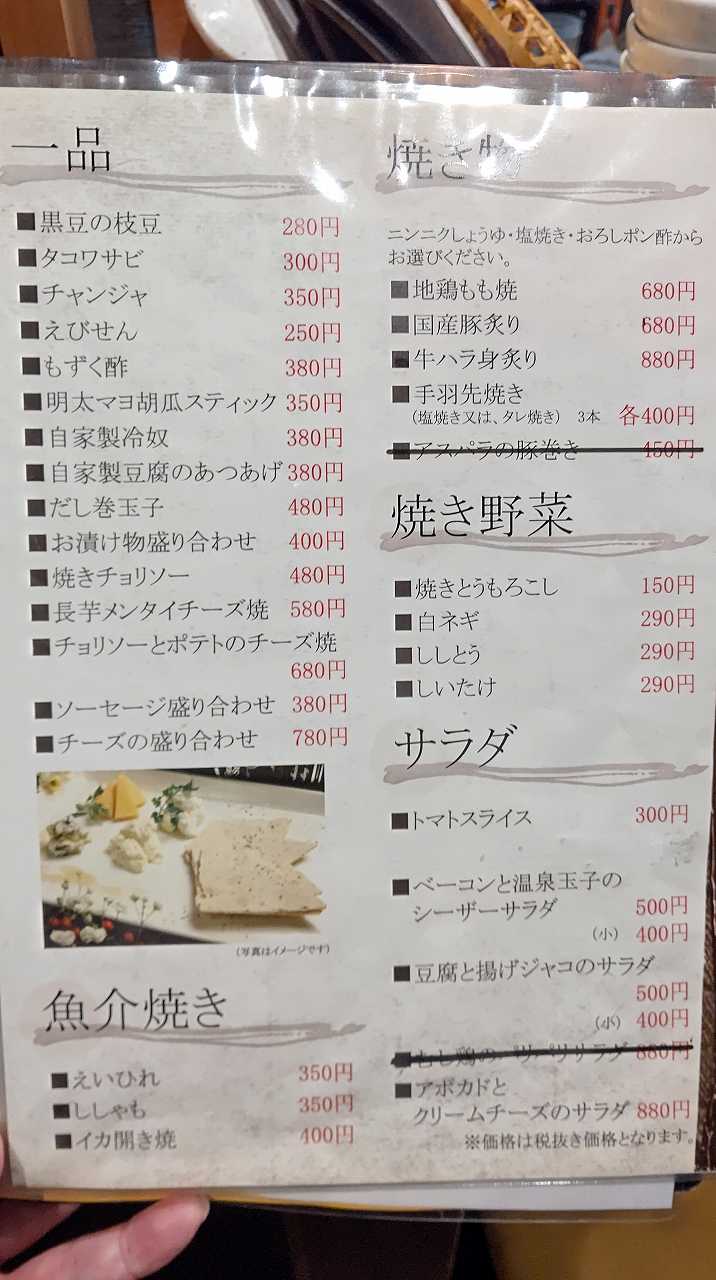 一品
■黒豆の枝豆 280円
■タコワサビ 300円
■チャンジャ 350円
■えびせん 250円
■もずく酢 380円
■明太マヨ胡瓜スティック 350円
■自家製冷奴 380円
■自家製豆腐のあつあげ 380円
■だし巻玉子 480円
■お漬け物盛り合わせ 400円
■焼きチョリソー 480円
■長芋メンタイチーズ焼 580円
■チョリソーとポテトのチーズ焼
680円
■ソーセージ盛り合わせ 380円
■チーズの盛り合わせ 780円
(写真はイメージです)
魚介焼き
■えいひれ 350円
■ししゃも 350円
■イカ開き焼 400円
焼き物
ニンニクしょうゆ・塩焼き・おろしポン酢から
お選びください。
■地鶏もも焼 680円
■国産豚炙り 680円
■牛ハラ身炙り 880円
■手羽先焼き
(塩焼き又は、タレ焼き) 3本 各400円
■アスパラの豚巻き 450円
焼き野菜
■焼きとうもろこし 150円
■白ネギ 290円
■ししとう 290円
■しいたけ 290円
サラダ
■トマトスライス 300円
■ベーコンと温泉玉子の
シーザーサラダ 500円
(小) 400円
■豆腐と揚げジャコのサラダ
500円
(小) 400円
■むし鶏のパリパリサラダ 880円
■アボカドと
クリームチーズのサラダ 880円
※価格は税抜き価格となります。